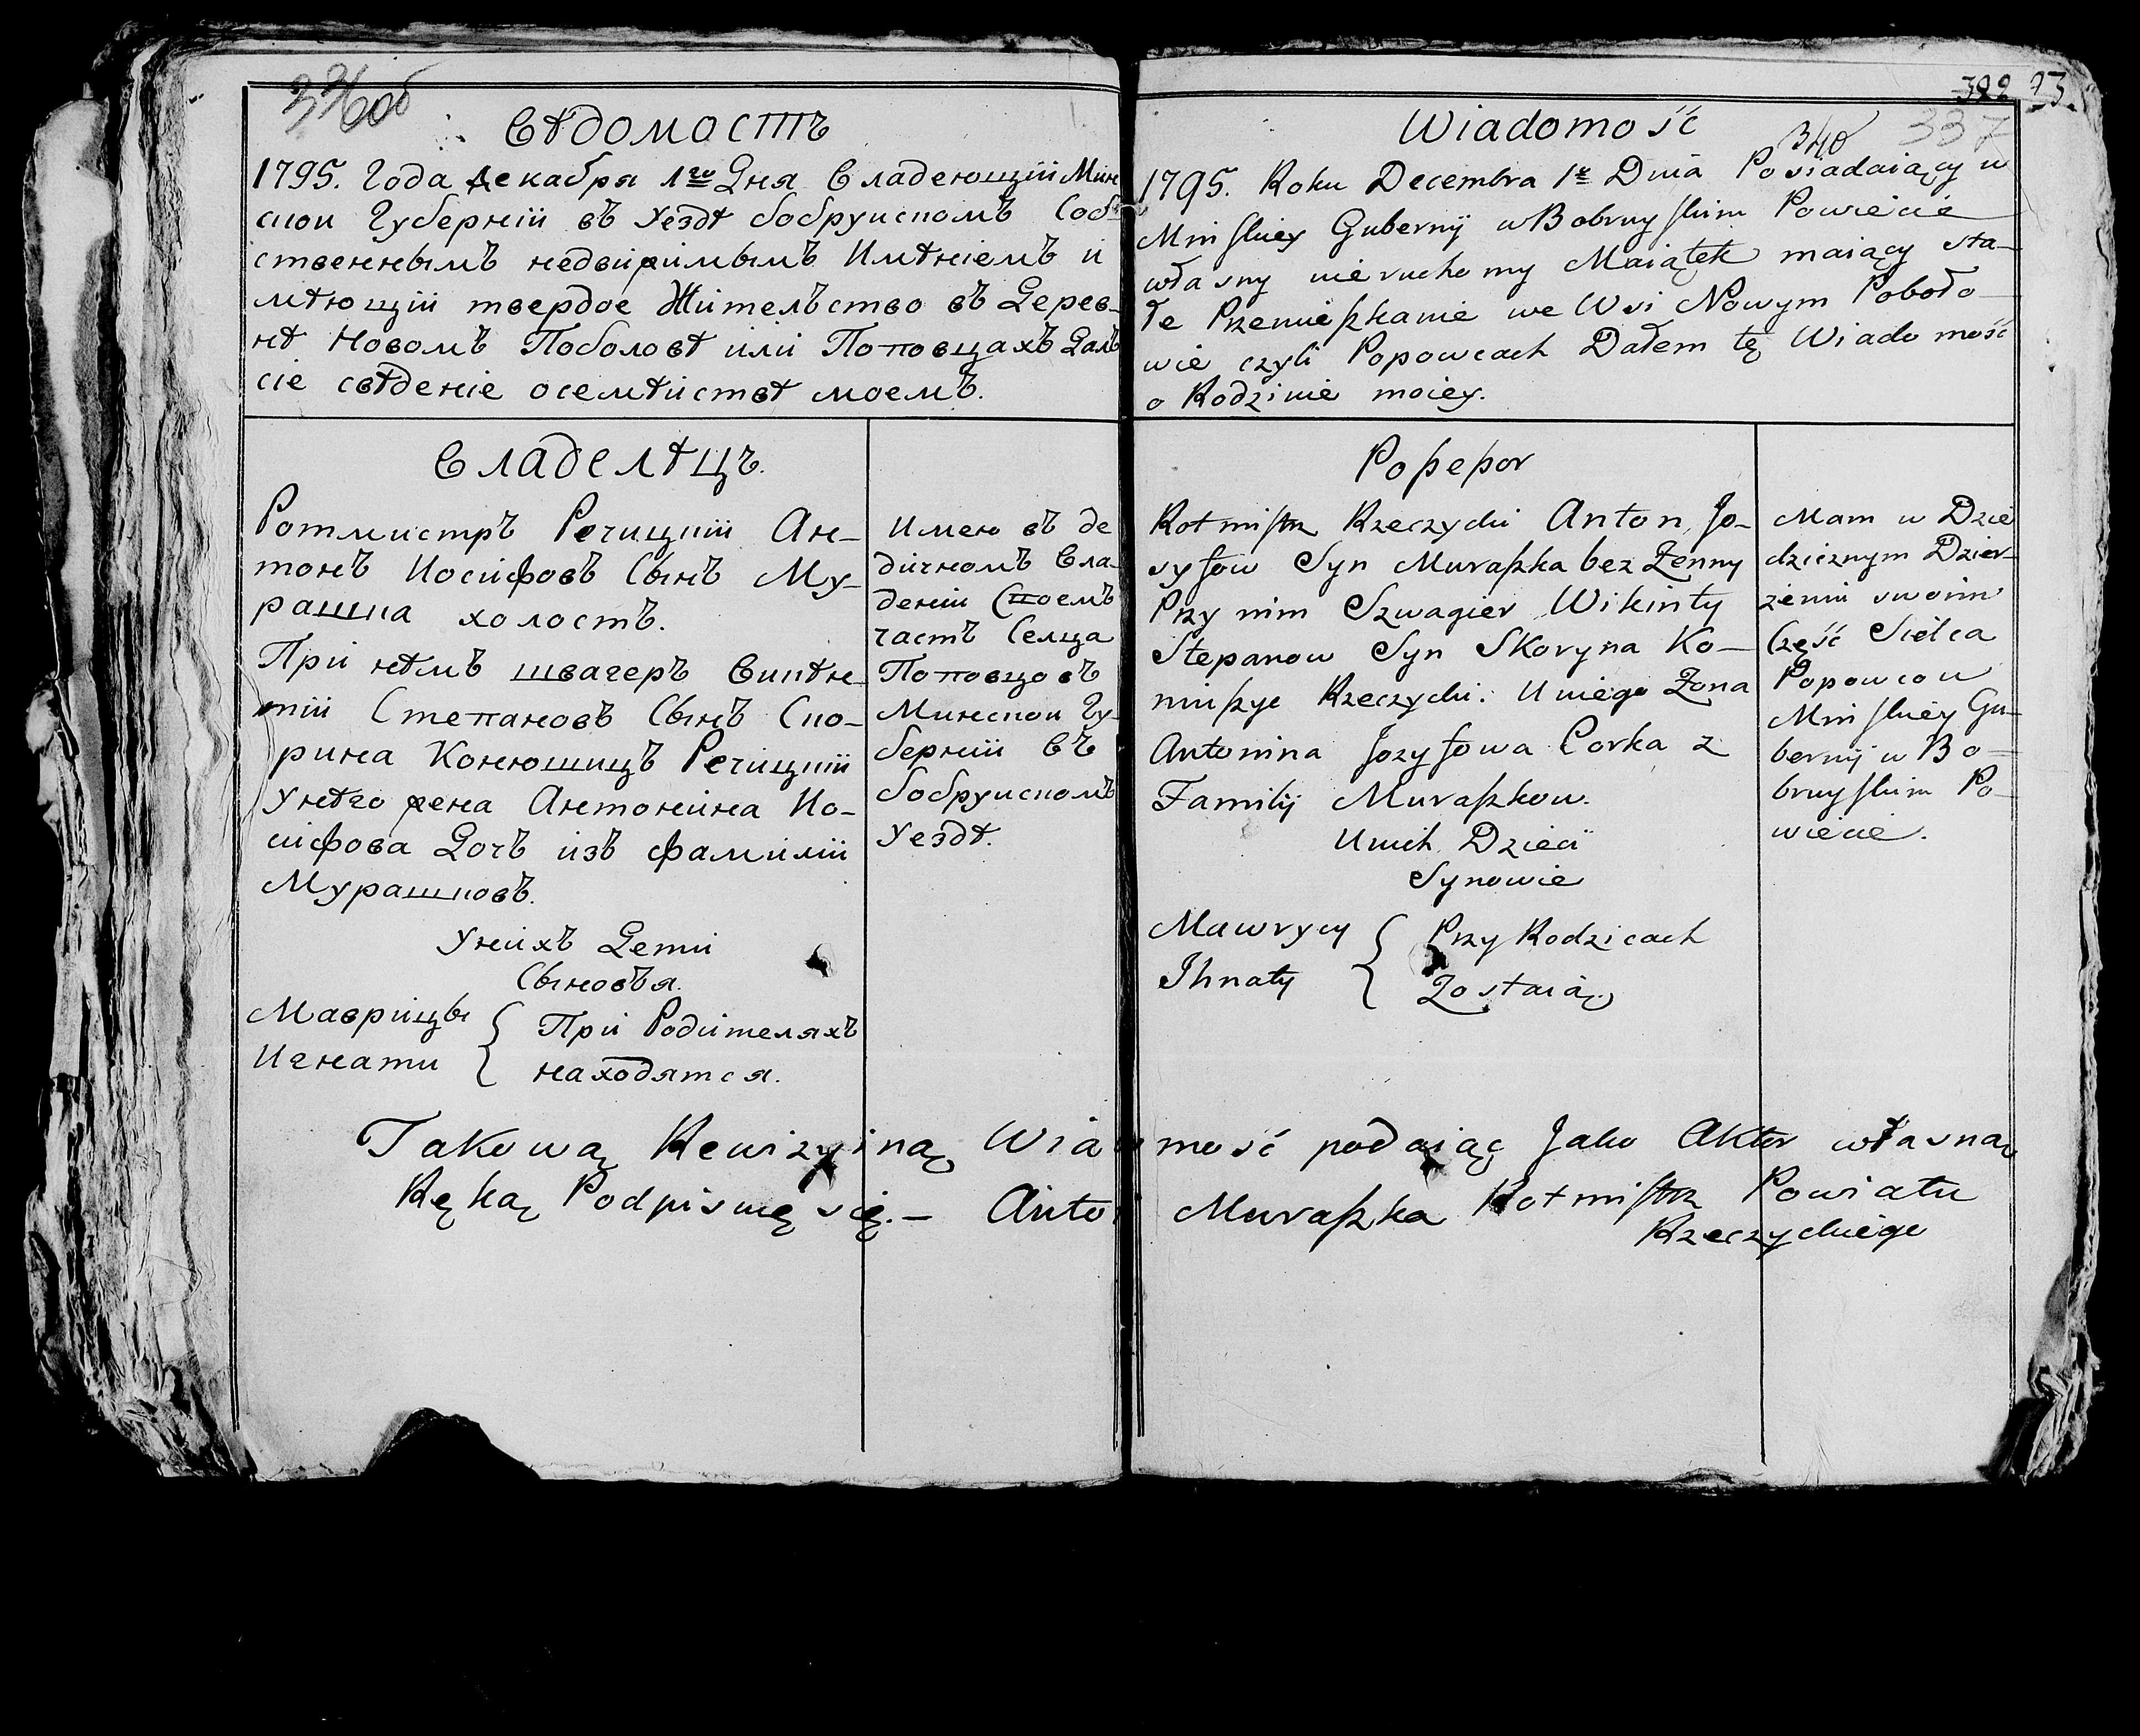 Вѣдомость
1795. Года Декабря 1го Дня Владеющій Мин
скои Губерніи въ Уездѣ бобруискомъ Соб-
ственнымъ недвижимымъ Имѣніемъ и
мѣющій твердое Жителъство въ Дерев-
нѣ Новомъ Поболовѣ или Поповцахъ Далъ
сіе свѣденіе осемѣиствѣ моемъ.
Владелѣцъ.
Ротмистръ Речицкій Ан-
тонъ Иосифовъ Сынъ Му-
рашка холостъ.
При нѣмъ швагеръ Викѣн-
тій Степановъ Сынъ Ско-
рина Конюшицъ Речицкій
Унѣго жена Антонина Ио-
сифова Дочъ изъ фамиліи
Мурашковъ.
Унихъ Дети
Сыновъя.
Маврицы
Игнати
При Родителяхъ
находятся.
Имею въ де
дичномъ Вла-
деніи Своемъ
частъ Селца
Поповцовъ
Минскои Гу-
берніи Въ
бобруискомъ
Уездѣ.
322 93
340 337
Wiadomość
1795. Roku Decembra 1o Dnia Posiadaiący w
Minskiey Gubernij w Bobruyskim Powiecie
własny nieruchomy Maiątek maiący sta-
łe Przemieszkanie we Wsi Nowym Poboło-
wie czyli Popowcach Dałem tę Wiadomość
o Rodzinie moiey.
Possessor
Rotmistrz Rzeczycki Anton Jo-
zyfow Syn Muraszka bez Zenny
Przy nim Szwagier Wikinty
Stepanow Syn Skoryna Ko-
niuszyc Rzeczycki. U niego Zona
Antonina Jozyfowa Corka z
Familij Muraszkow.
U nich Dzieci
Synowie
Mawrycy
Ihnaty
Przy Rodzicach
Zostaią.
Mam w Dzie
dzicznym Dzier-
zeniu swoim
Część Sielca
Popowcow
Minskiey Gu-
bernij w Bo-
bruyskim Po-
wiecie.
Takową Rewizyiną Wiado mość podaiąc Jako Aktor własną
Ręką Podpisuię się.- Anton Muraszka Rotmistrz Powiatu
Rzeczyckiego